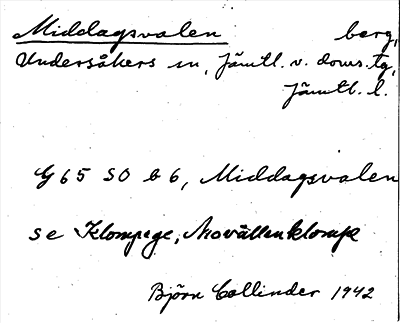 Middagsvalen berg,
Undersåkers sn, Jämtl. v. doms. tg,
Jämtl. l.
G 65 SO b 6, Middagsvalen
se Klompege, klompe
Björn Collinder 1942